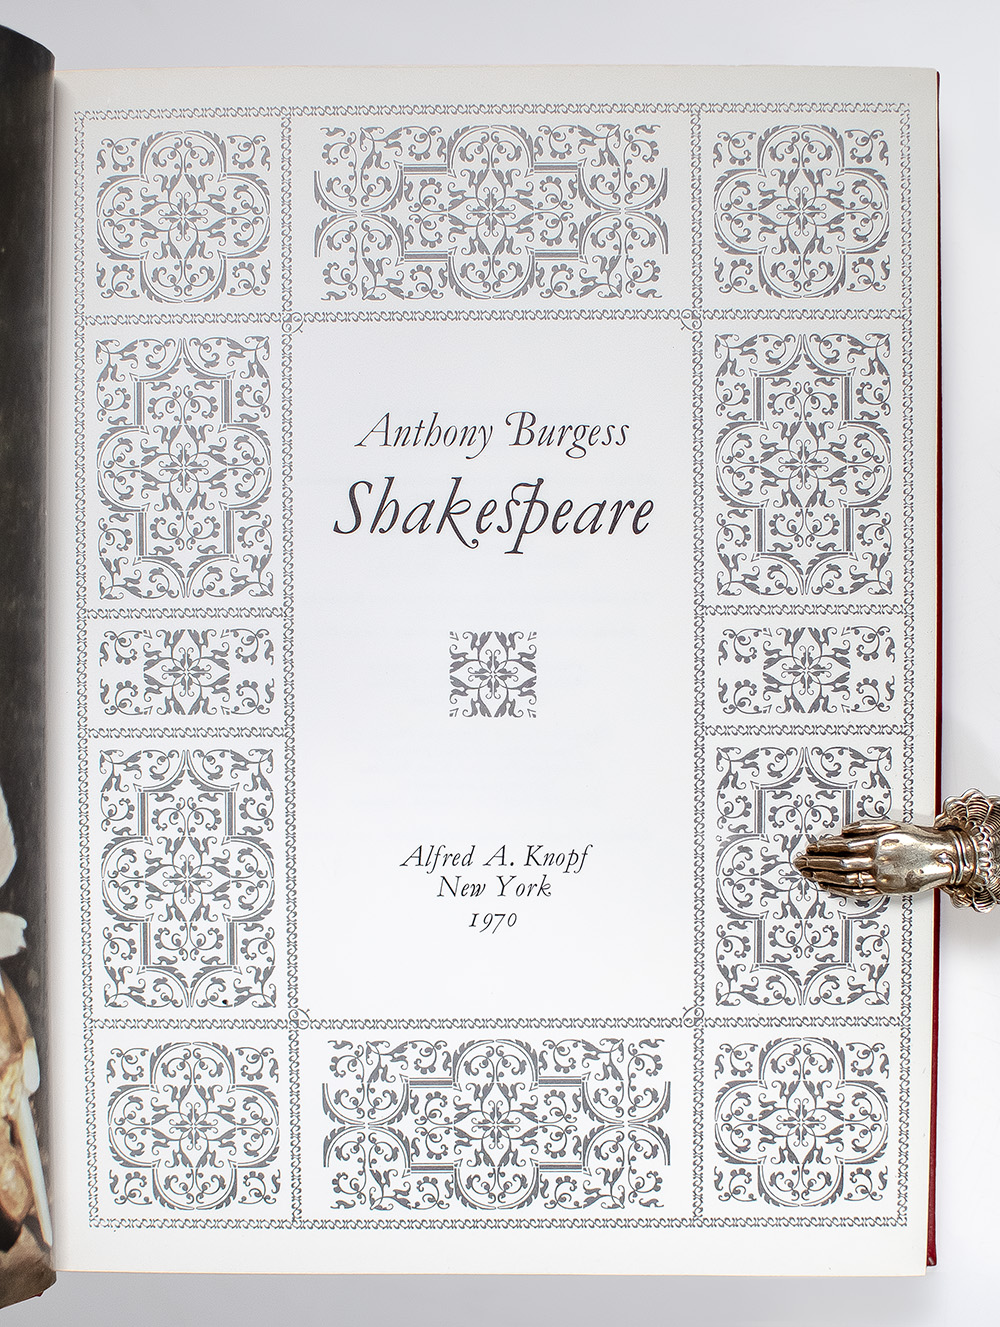 Anthony Burgess
Shakespeare
Alfred A. Knopf
New York
1970